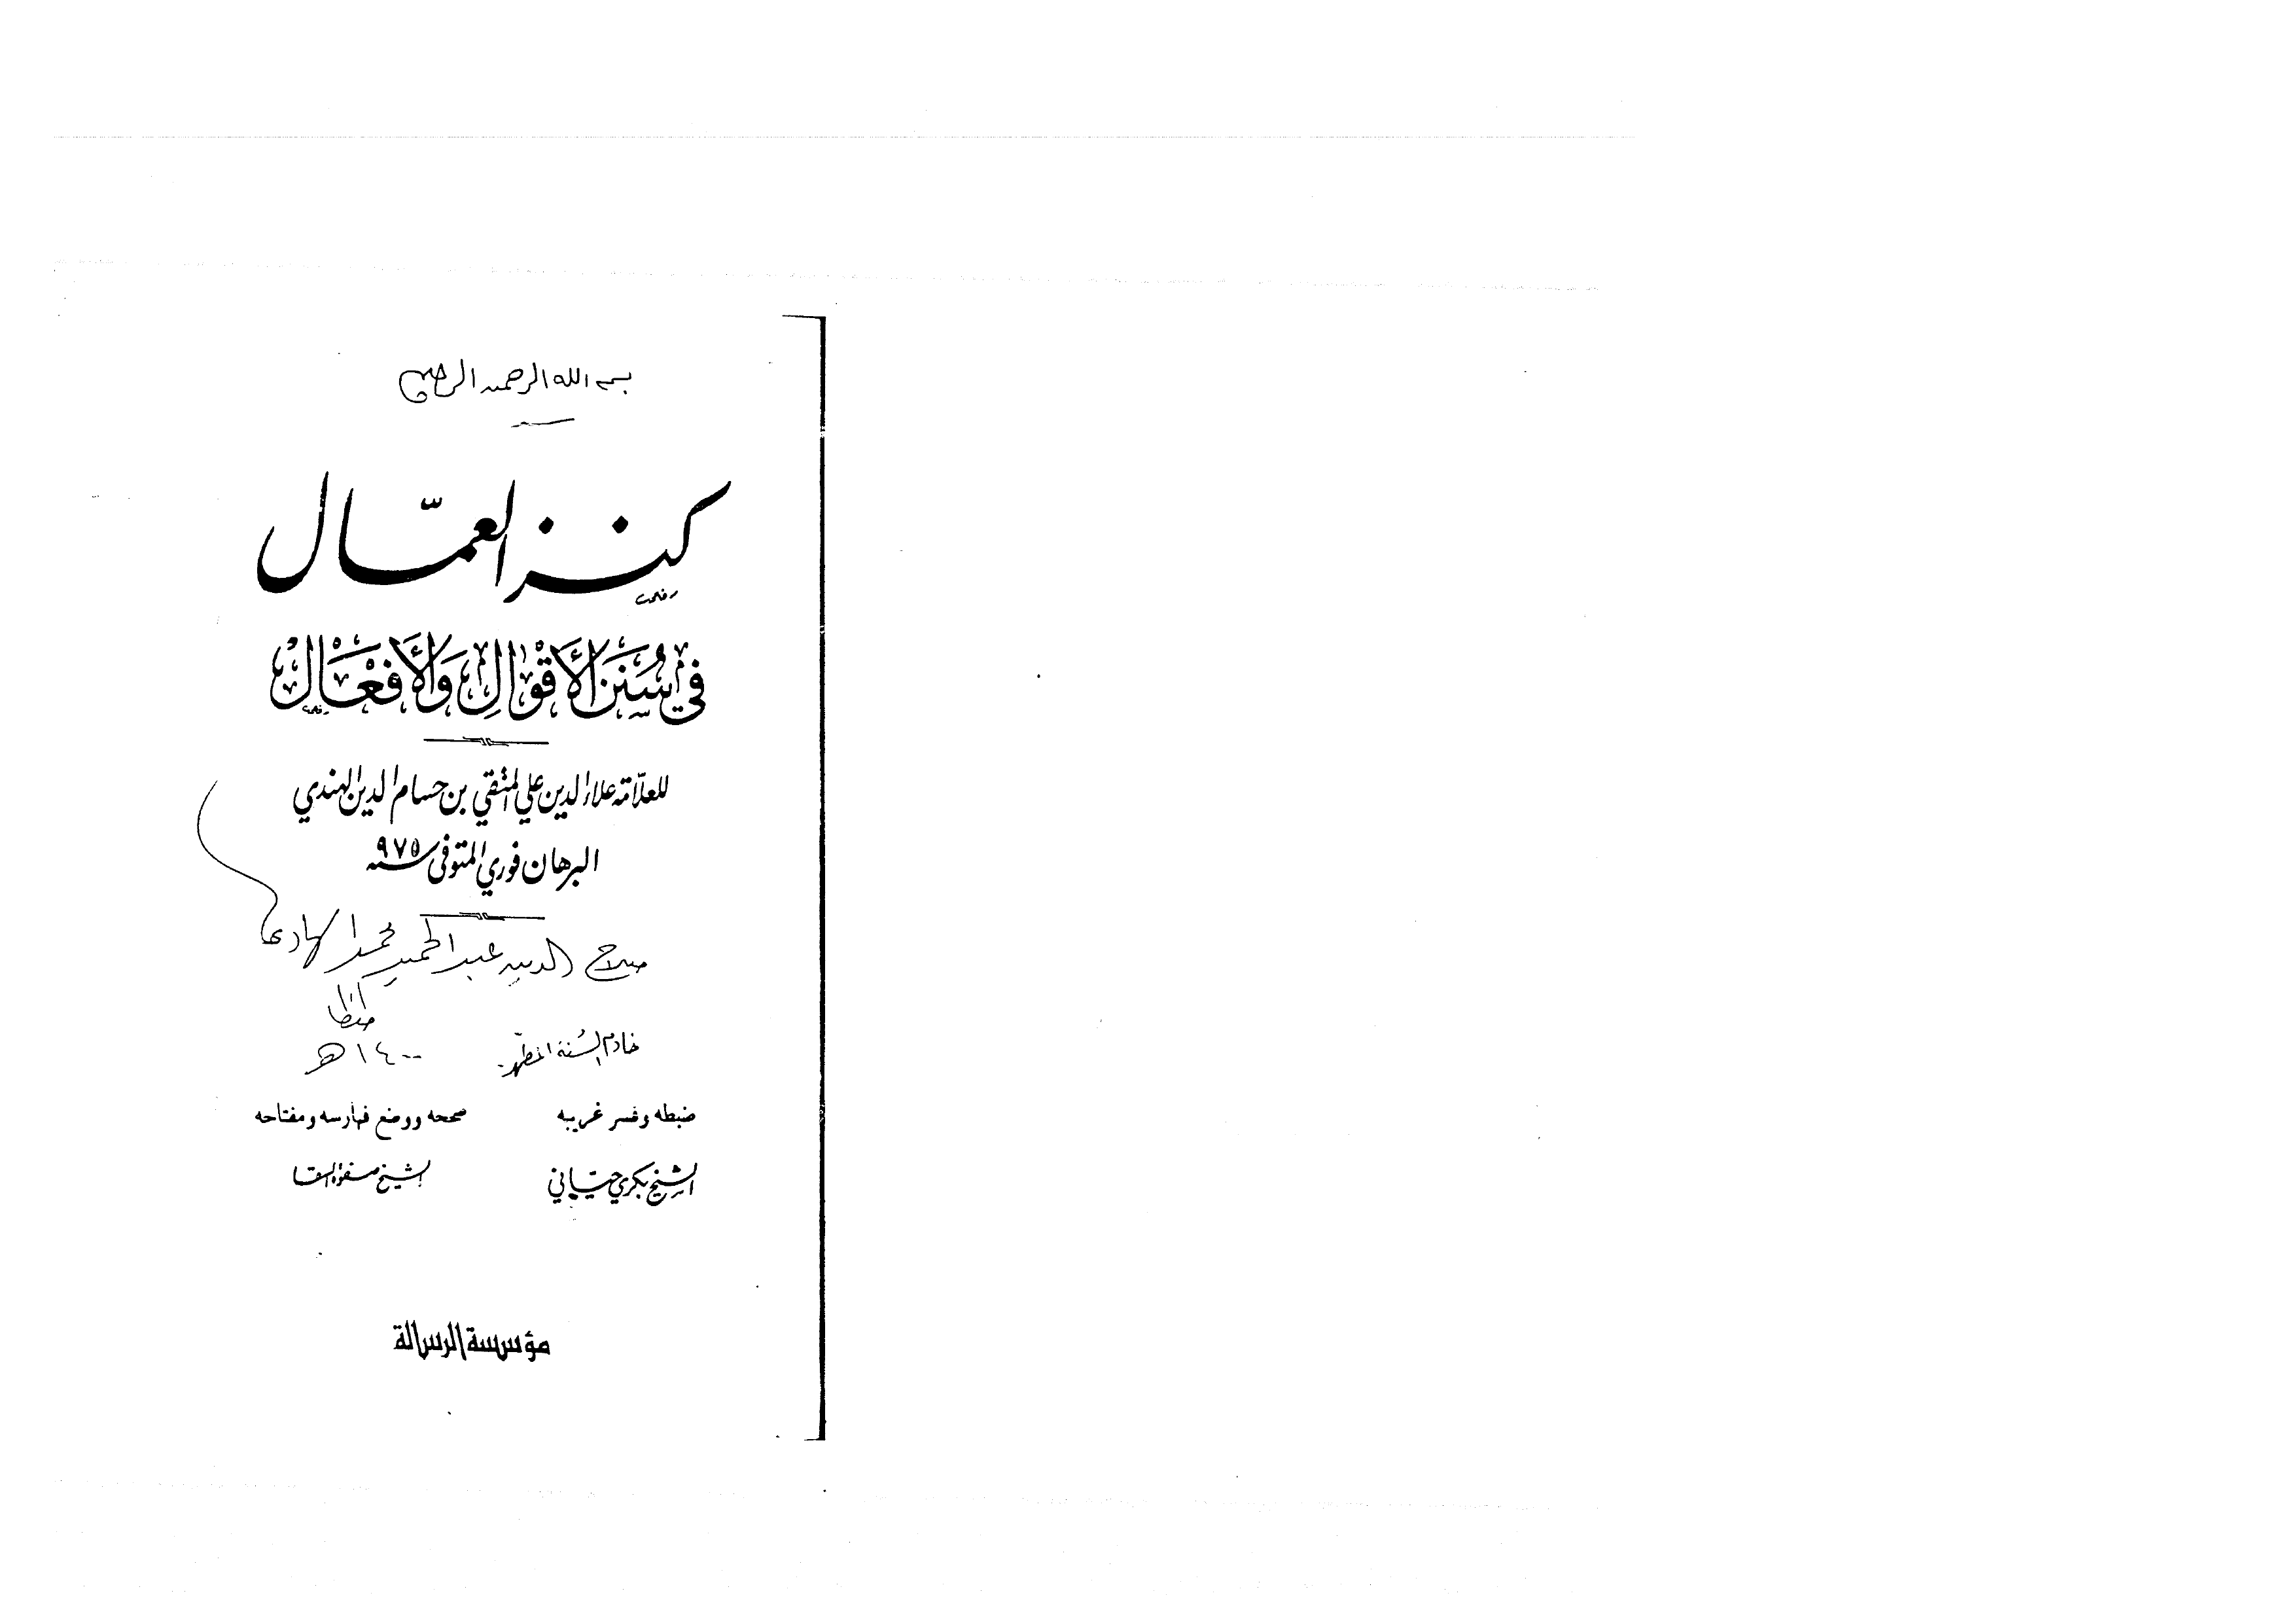 بسم الله الرحمن الرحيم
كنز العمّال
في سُنَنِ الأَقْوَالِ وَالأَفْعَالْ
للعلّامة علاء الدين علي المتقي بن حسام الدين الهندي
البرهان فوري المتوفى سنة ٩٧٥
صلاح الدين عبد الحميد محمد الهادى
طنطا
خادم السُنة المطهرة
١٤٠٠ هـ
ضبطه وفسر غريبه
صححه ووضع فهارسه ومفتاحه
الشيخ بكري حيّاني
الشيخ صفوة السقا
مؤسسة الرسالة